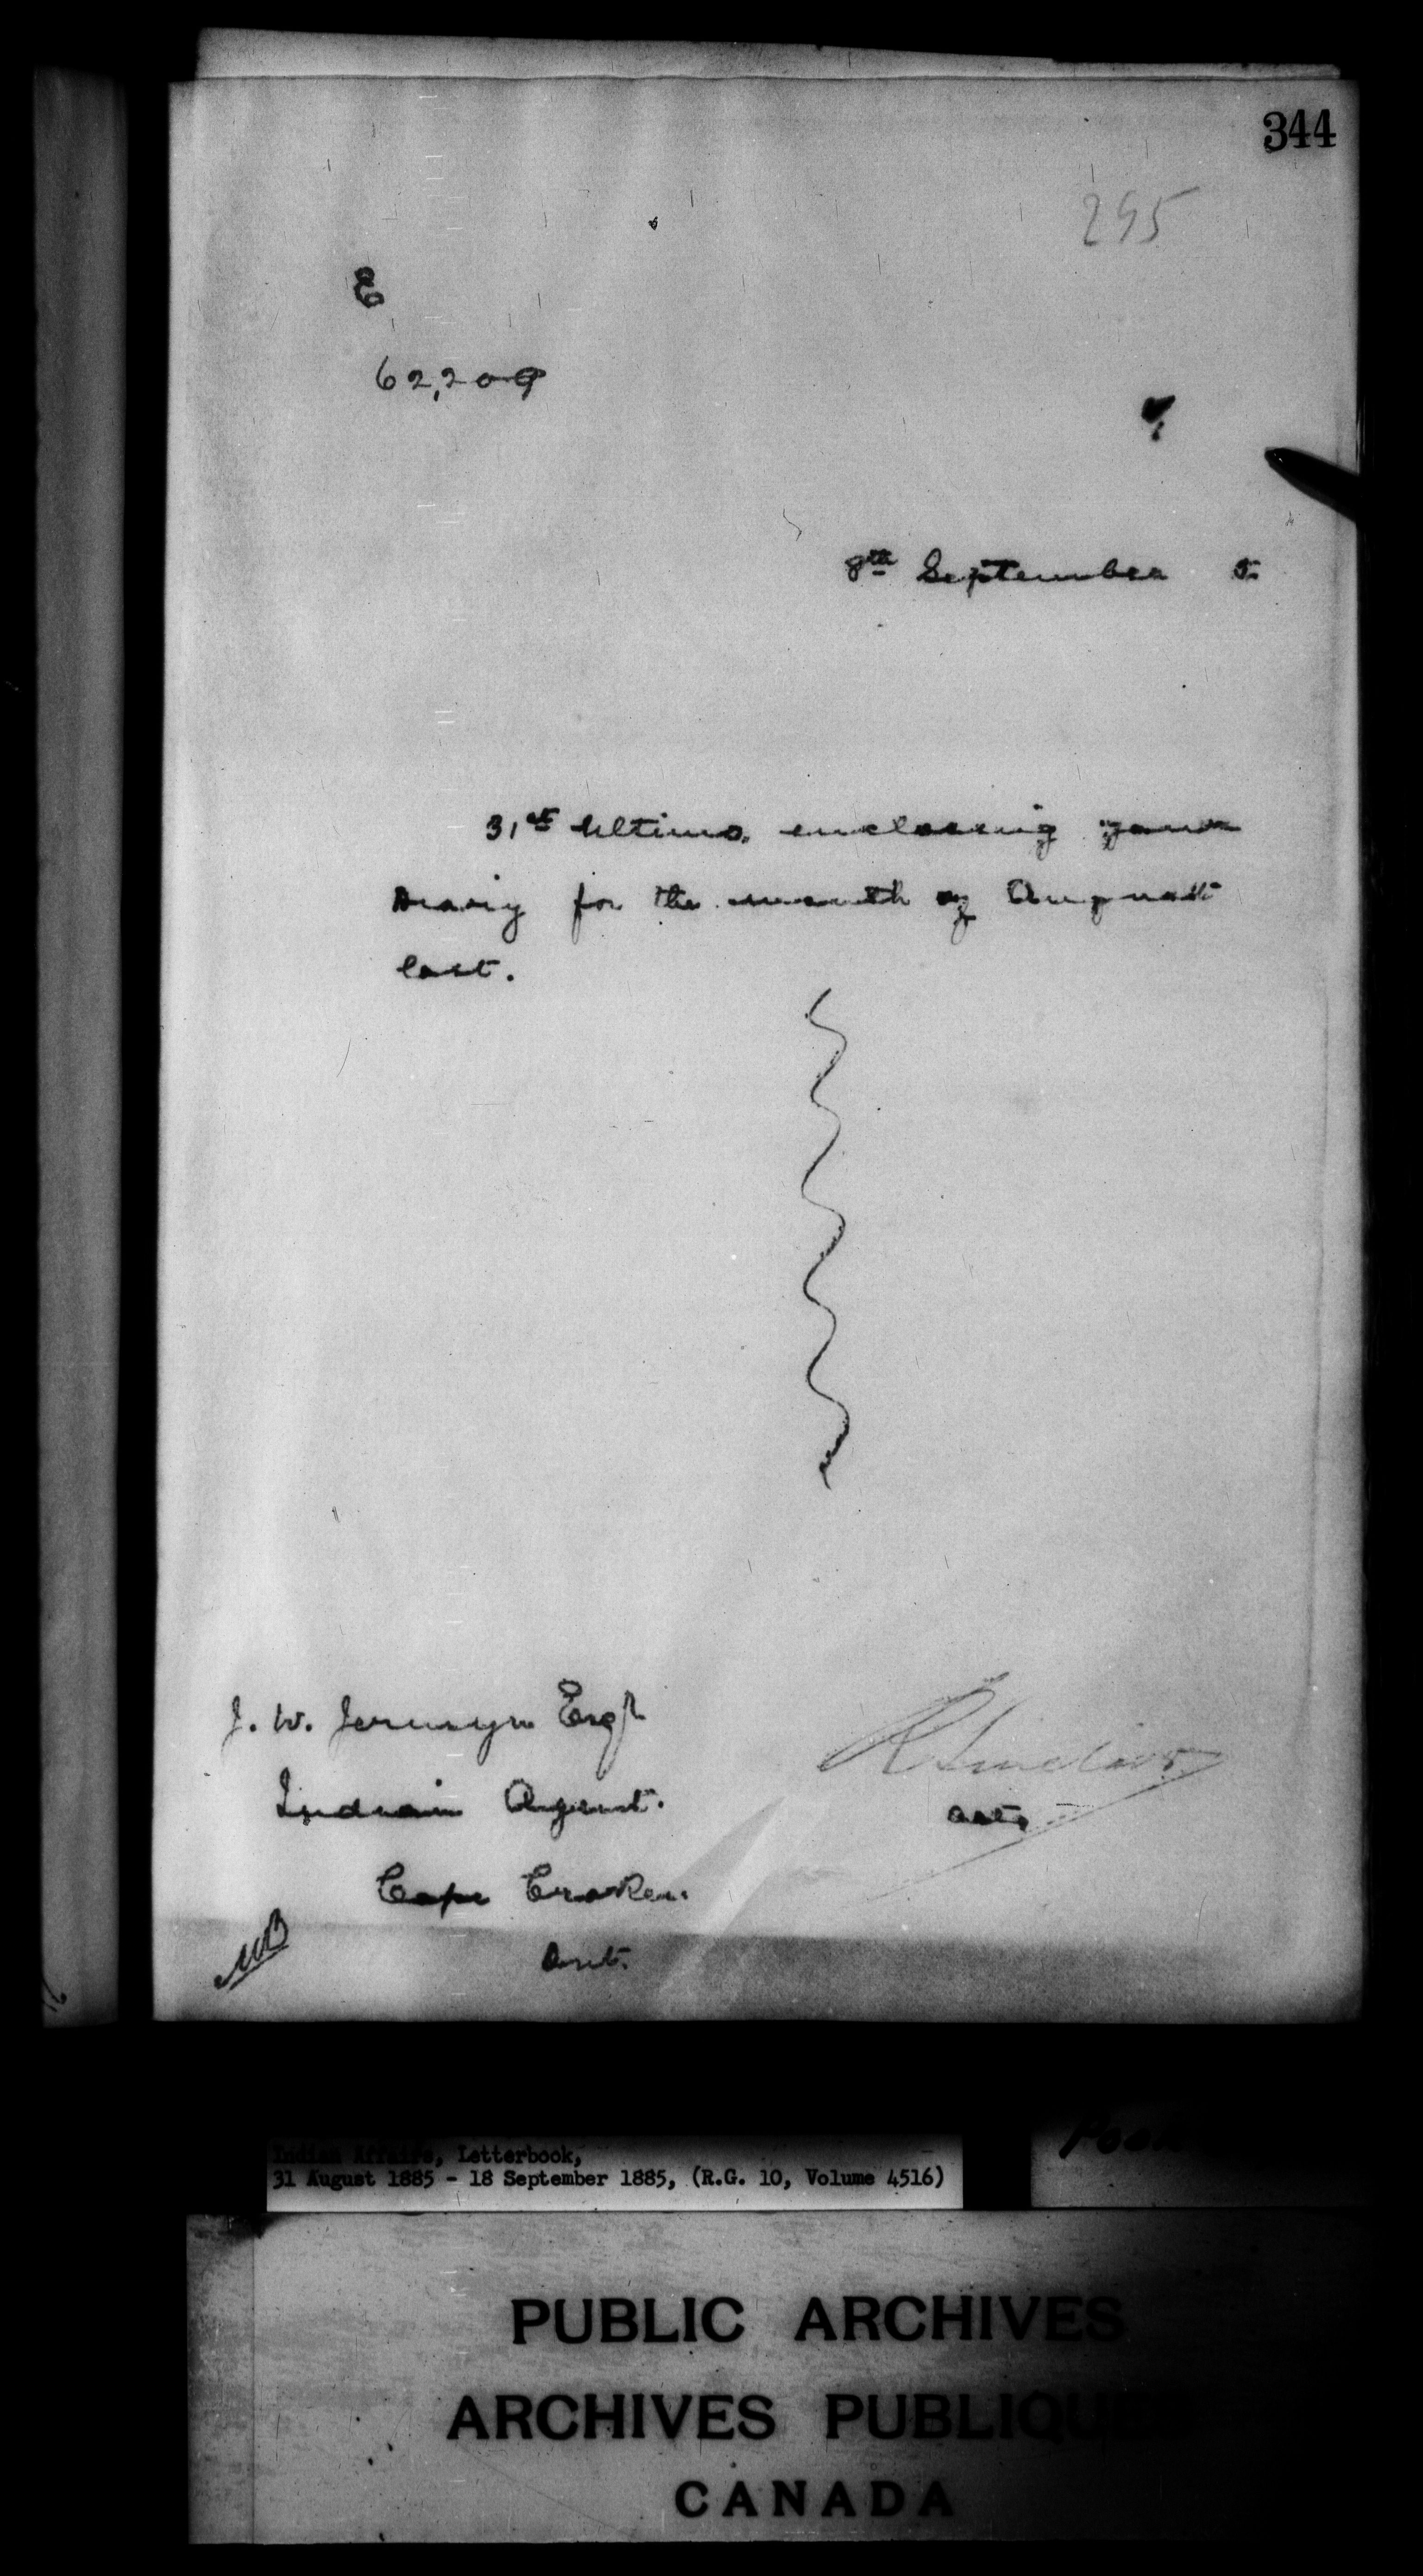 344
295
E
62,209
8th September 5
31st Ultimo, enclosing your
Diary for the month of August
last.
J. W. Jermyn Esqr
Indian Agent.
Cape Croker.
Ont.
R Sinclair
MB
Indian Affairs, Letterbook,
31 August 1885 - 18 September 1885, (R.G. 10, Volume 4516)
PUBLIC ARCHIVES
ARCHIVES PUBLIQUES
CANADA